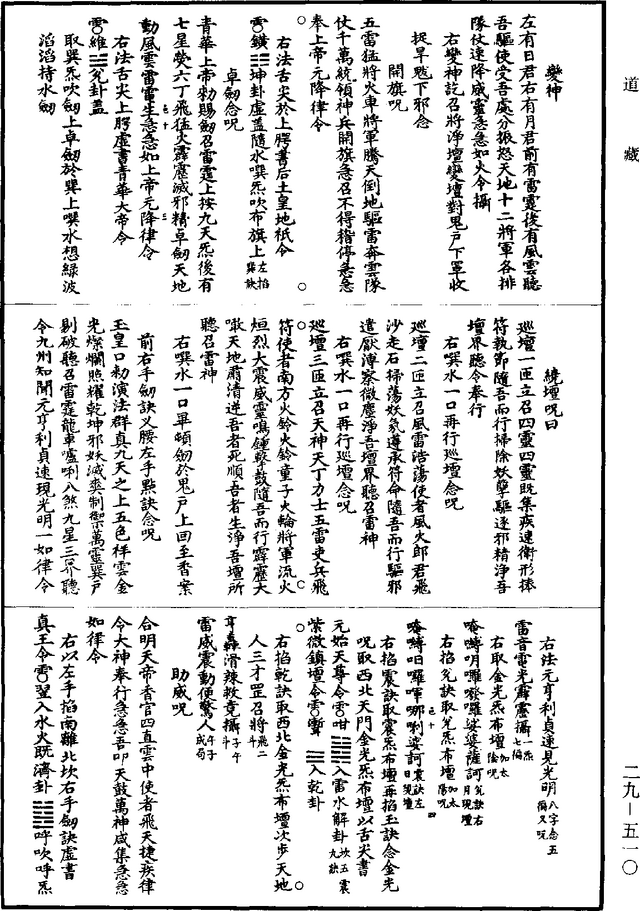 道藏
變神
左有日君右有月君前有雷霆後有風雲聽
吾驅使受吾處分振怒天地十二將軍各排
隊仗速降威靈急急如火令攝
右變神訖召將淨壇變壇對鬼戶下罡收
捉旱魃下邪念
開旗呪
五雷猛將火車將軍騰天倒地驅雷奔雲隊
仗千萬統領神兵開旗急召不得稽停急急
奉上帝元降律令
右法舌尖於上腭書后土皇地祇令
坤卦虛蓋隨水噀炁吹布旗上左掐巽訣
卓劒念呪
青華上帝勑賜劒召雷霆上按九天炁後有
七星熒六丁飛猛火霹靂滅邪精卓劒天地
動風雲雷電生急急如上帝元降律令
右法舌尖上腭虛書青華大帝令
維 兊卦蓋
取巽炁吹劒上卓劒於巽上噀水想綠波
滔滔持水劒
繞壇呪曰
巡壇一匝立召四靈四靈既集疾速衛形捧
符執節隨吾而行掃除妖孽驅逐邪精淨吾
壇界聽令奉行
右噀水一口再行巡壇念呪
巡壇二匝立召風雷浩蕩使者風火郎君飛
沙走石掃蕩妖氛遵承符命隨吾而行驅邪
遣猒淖察微塵淨吾壇界聽召雷神
右噀水一口再行巡壇念呪
巡壇三匝立召天神天丁力士五雷吏兵飛
符使者南方火鈴火鈴童子火輪將軍流火
烜烈大震威靈鳴鍾擊鼓隨吾而行霹靂大
噉天地肅清逆吾者死順吾者生淨吾壇所
聽召雷神
右噀水一口畢頓劒於鬼戶上回至香案
前右手劒訣叉腰左手點訣念呪
玉皇口勑演法群真九天之上五色祥雲金
光燦爛照耀乾坤邪妖滅爽制禦萬靈巽戶
剔破聽召雷霆龍車嚧唎八煞九星三界聽
令九州知聞元亨利貞速現光明一如律令
右法元亨利貞速見光明八字念五徧又呪
雷音電光霹靂攝一炁七徧
右取金光炁布壇加太陰呪
唵嚩月囉癹囉娑婆薩訶兊訣右月現壇
右掐兊訣取兊炁布壇加太陽呪
唵嚩日囉嗶唧唎娑訶震訣左日現壇
右掐震訣取震炁布壇再掐玉訣念金光
呪取西北天門金光炁布壇以舌尖書
元始天尊令 咁 入雷水解卦坎五震九訣
紫微鎮壇令 聻 入乾卦
右掐乾訣取西北金光炁布壇次步天地
人三才罡召將飛二斗
亨轟滑辣敕竟攝子午斗
雷威震動便驚人午子成芻
助威呪
合明天帝香官四直雲中使者飛天捷疾律
令大神奉行急急吾叩天鼓萬神咸集急急
如律令
右以左手掐南離北坎右手劒訣虛書
真王令 翌入水火既濟卦 呼吹呼炁
二九—五一〇